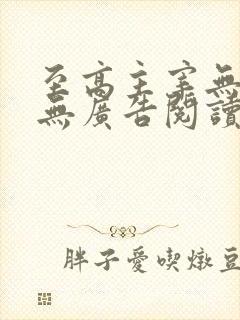 至高主宰無
無廣告閱讀
胖子愛喫燉豆